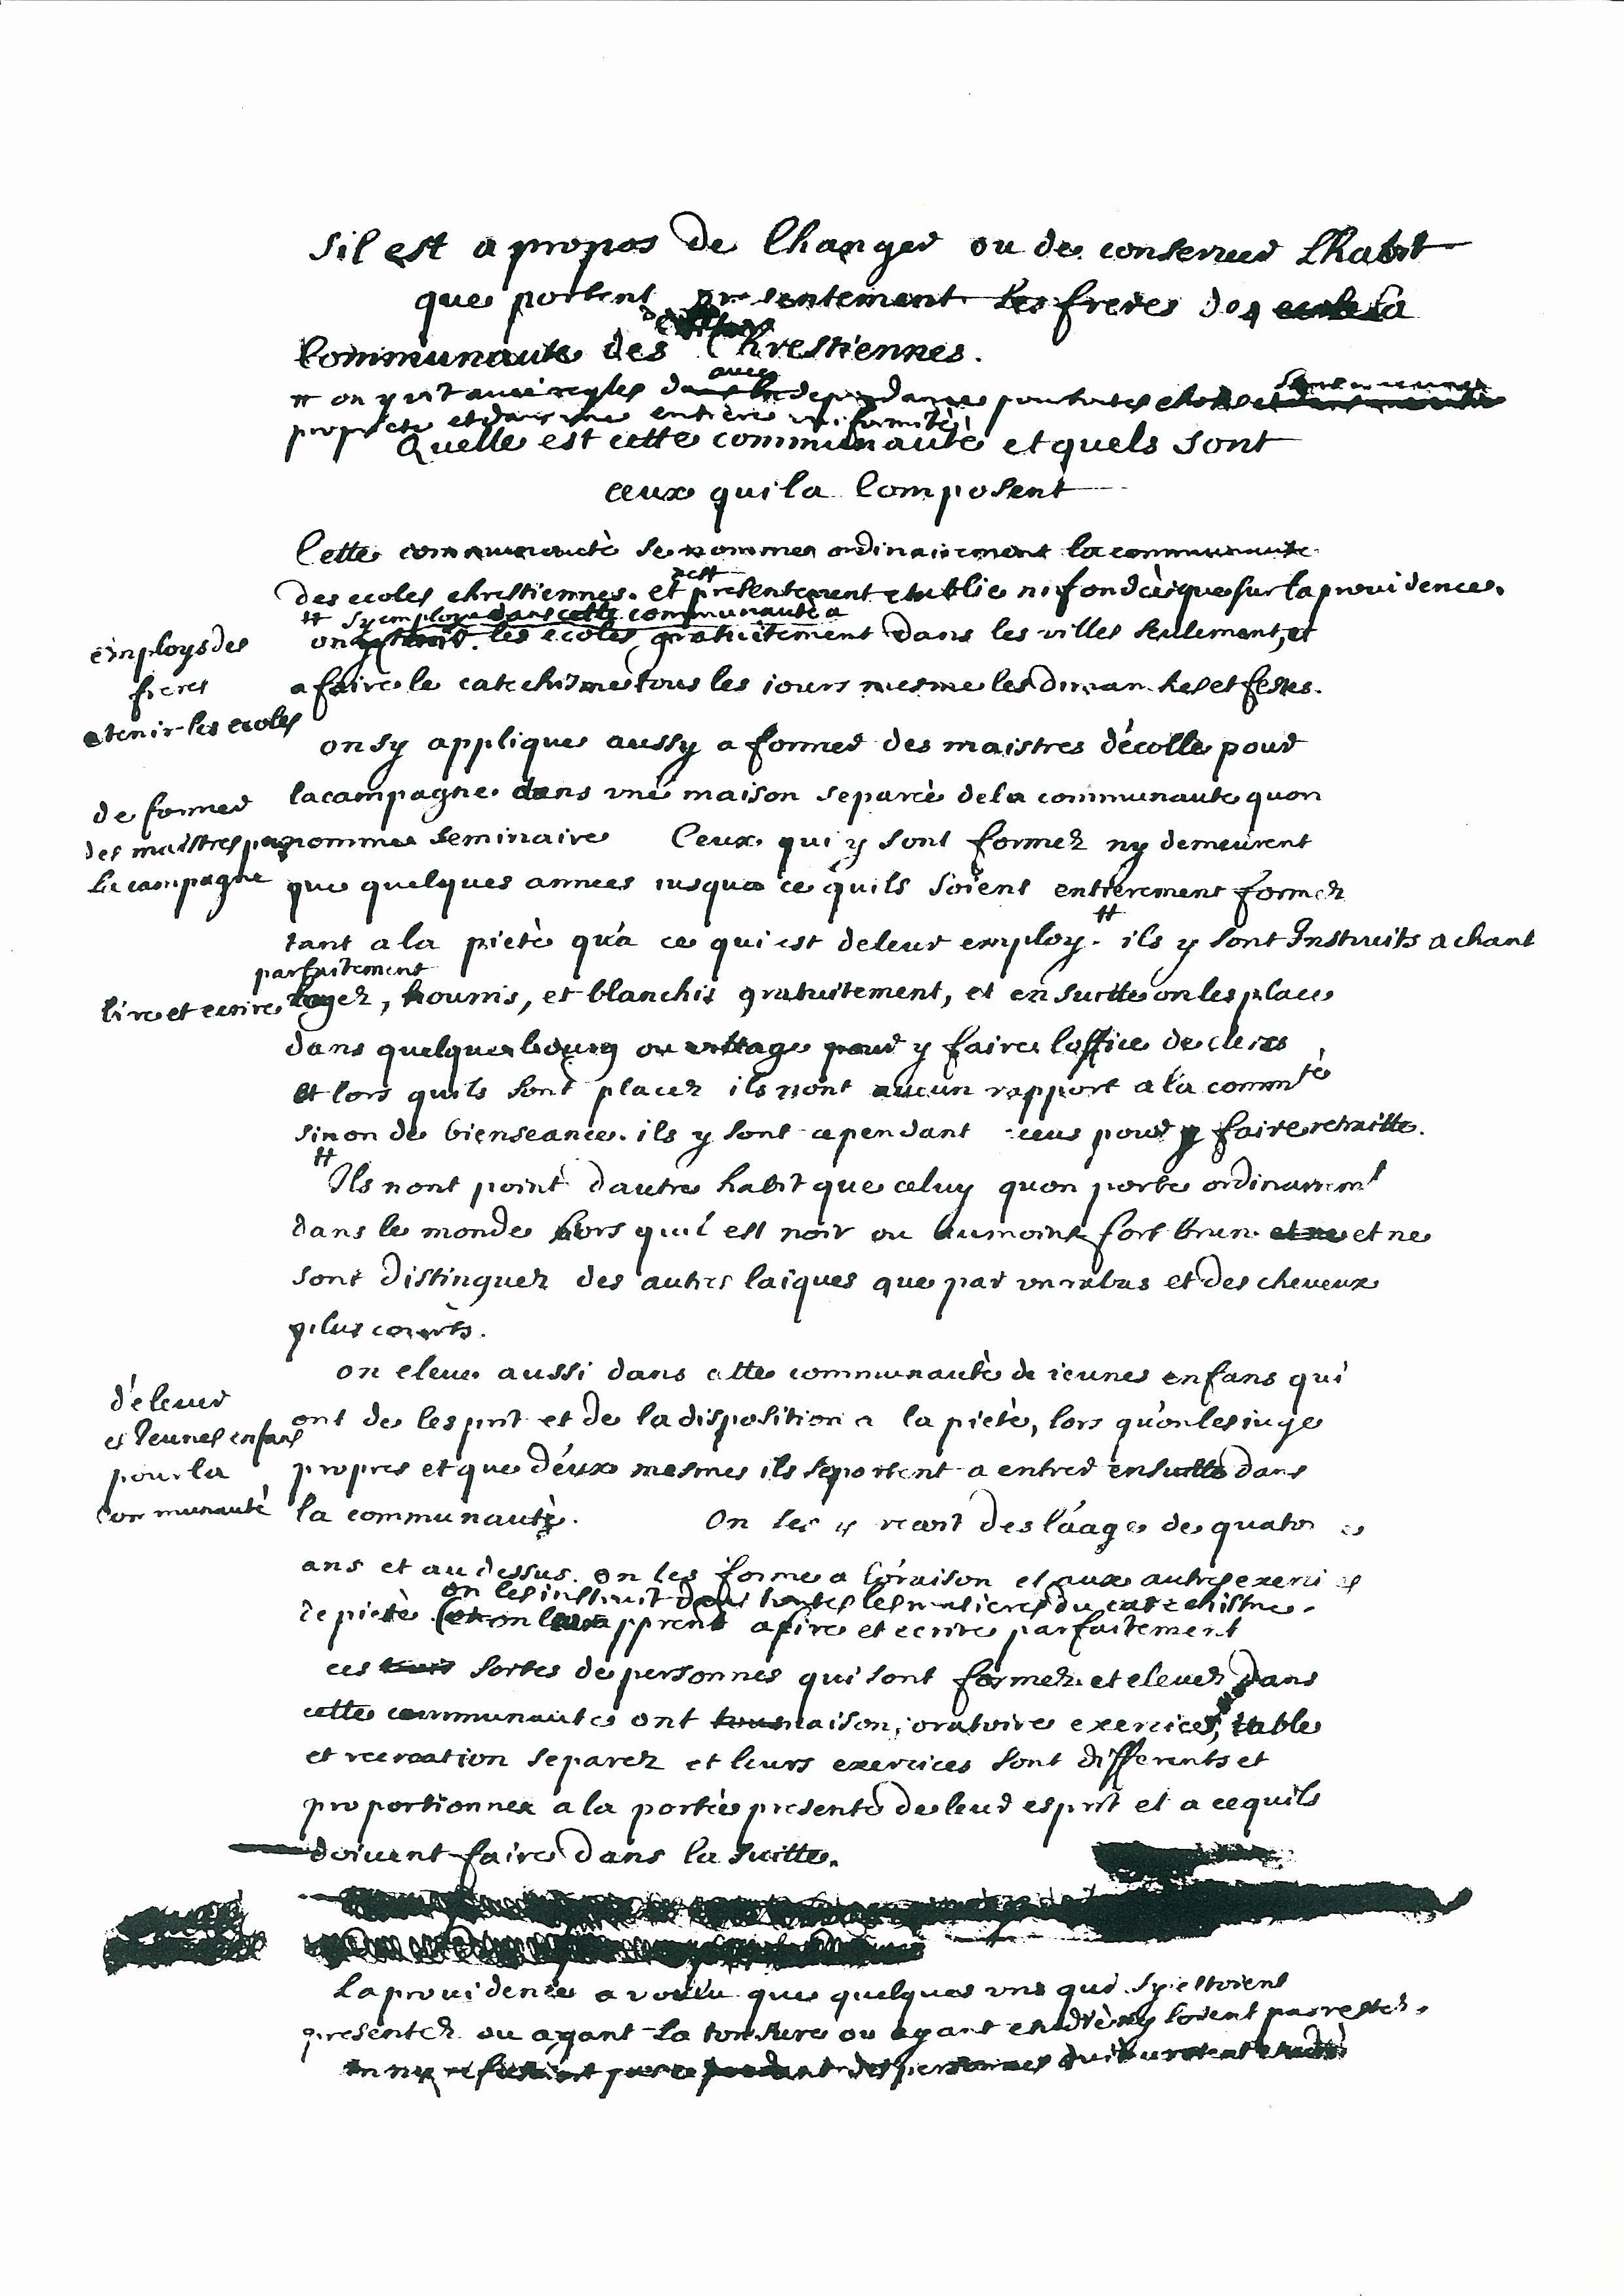 Sil est a propos de Changer ou de conserver Lhabit
que portent presentement les freres de la
Communaute des Ecoles Chrestiennes.
on y vit avec regles avec dependance pour toutes choses sans
propriete et dans une entiere uniformité
Quelle est cette communauté et quels sont
ceux qui la Composent
Cette communauté se nomme ordinairement la communaute
des ecoles chrestiennes. et nest presentement etablie ni fondèe que sur la providence.
on sy employe dans cette communauté a
les ecoles gratuitement dans les villes seulement, et
employs des
freres
a tenir les ecoles
a faire le catechisme tous les iours mesme les dimanches et festes.
on sy applique aussy a former des maistres décolle pour
la campagne dans une maison separeè de la communaute quon
de former
des maistres pour
la campagne
nomme seminaire Ceux qui y sont formez ny demeurent
que quelques annees iusqua ce quils soient entierement formez
tant a la pietè qu'a ce qui est de leur employ. ils y sont Instruits a chant
lire et ecrire parfaitement
logez, nourris, et blanchis gratuitement, et en suitte on les place
dans quelque bourg ou village pour y faire loffice de clercs
et lors quils sont placez ils nont aucun rapport a la commté
sinon de bienseance. ils y sont cependant receus pour y faire retraitte.
Ils nont point dautre habit que celuy quon porte ordinairemt
dans le monde hors quil est noir ou aumoins fort brun et ne
sont distinguez des autres laiques que par un rabas et des cheveux
plus courts.
on eleve aussi dans cette communautè de ieunes enfans qui
d'elever
de Ieunes enfans
pour la
communauté
ont de lesprit et de la disposition a la pietè, lors qu'on les iuge
propres et que d'eux mesmes ils se portent a entrer ensuitte dans
la communautè. On les y recoit des láage de quatorze
ans et au dessus. on les forme a lóraison et aux autres exercices
de pieté on les instruit dans toutes les matieres du catechisme.
et on leur apprend a lire et ecrire parfaitement
ces trois sortes de personnes qui sont formez et elevez dans
cette communauté ont maison, oratoire exercices, table
et recreation separez et leurs exercices sont differents et
proportionnez a la porteè presente de leur esprit et a ce quils
doivent faire dans la suitte.
La providence a voulu que quelques uns qui sy estoient
presentez ou ayant la tonsure ou ayant etudiè ny soient pas restez.
on ny refuse